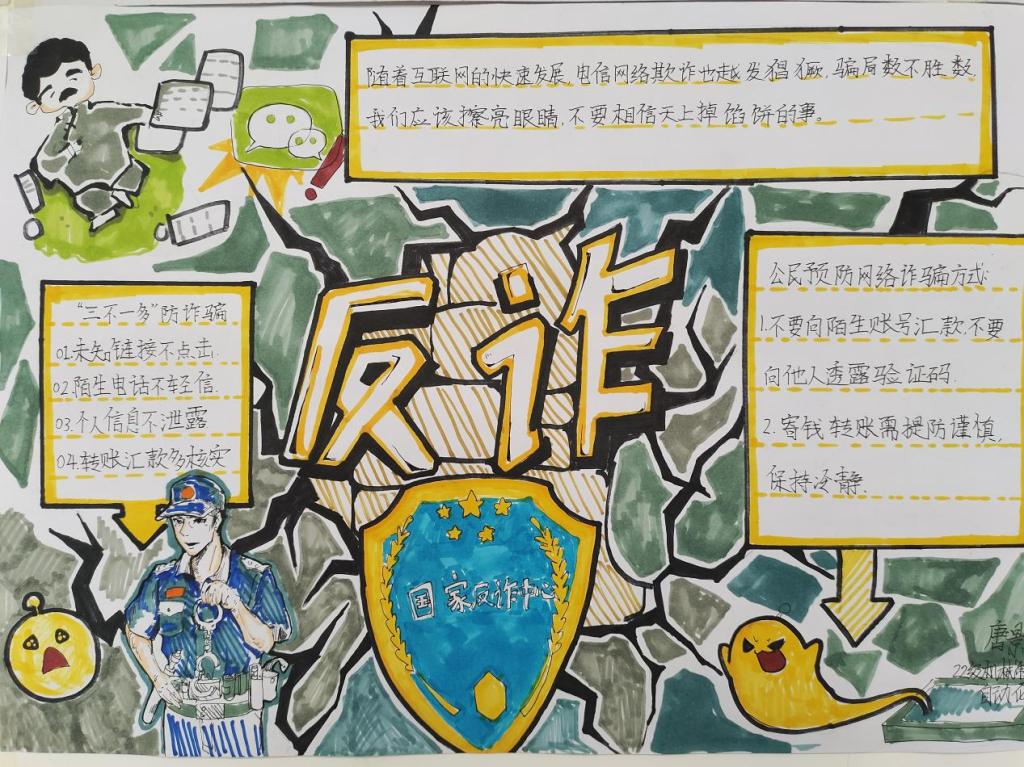 随着互联网的快速发展,电信网络欺诈也越发猖獗,骗局数不胜数,
我们应该擦亮眼睛,不要相信天上掉馅饼的事。
反诈
“三不一多”防诈骗
01.未知链接不点击.
02.陌生电话不轻信.
03.个人信息不泄露
04.转账汇款多核实
公民预防网络诈骗方式:
1.不要向陌生账号汇款,不要
向他人透露验证码.
2.寄钱转账需提防谨慎,
保持冷静.
国家反诈中心
唐
22级机械
自动化